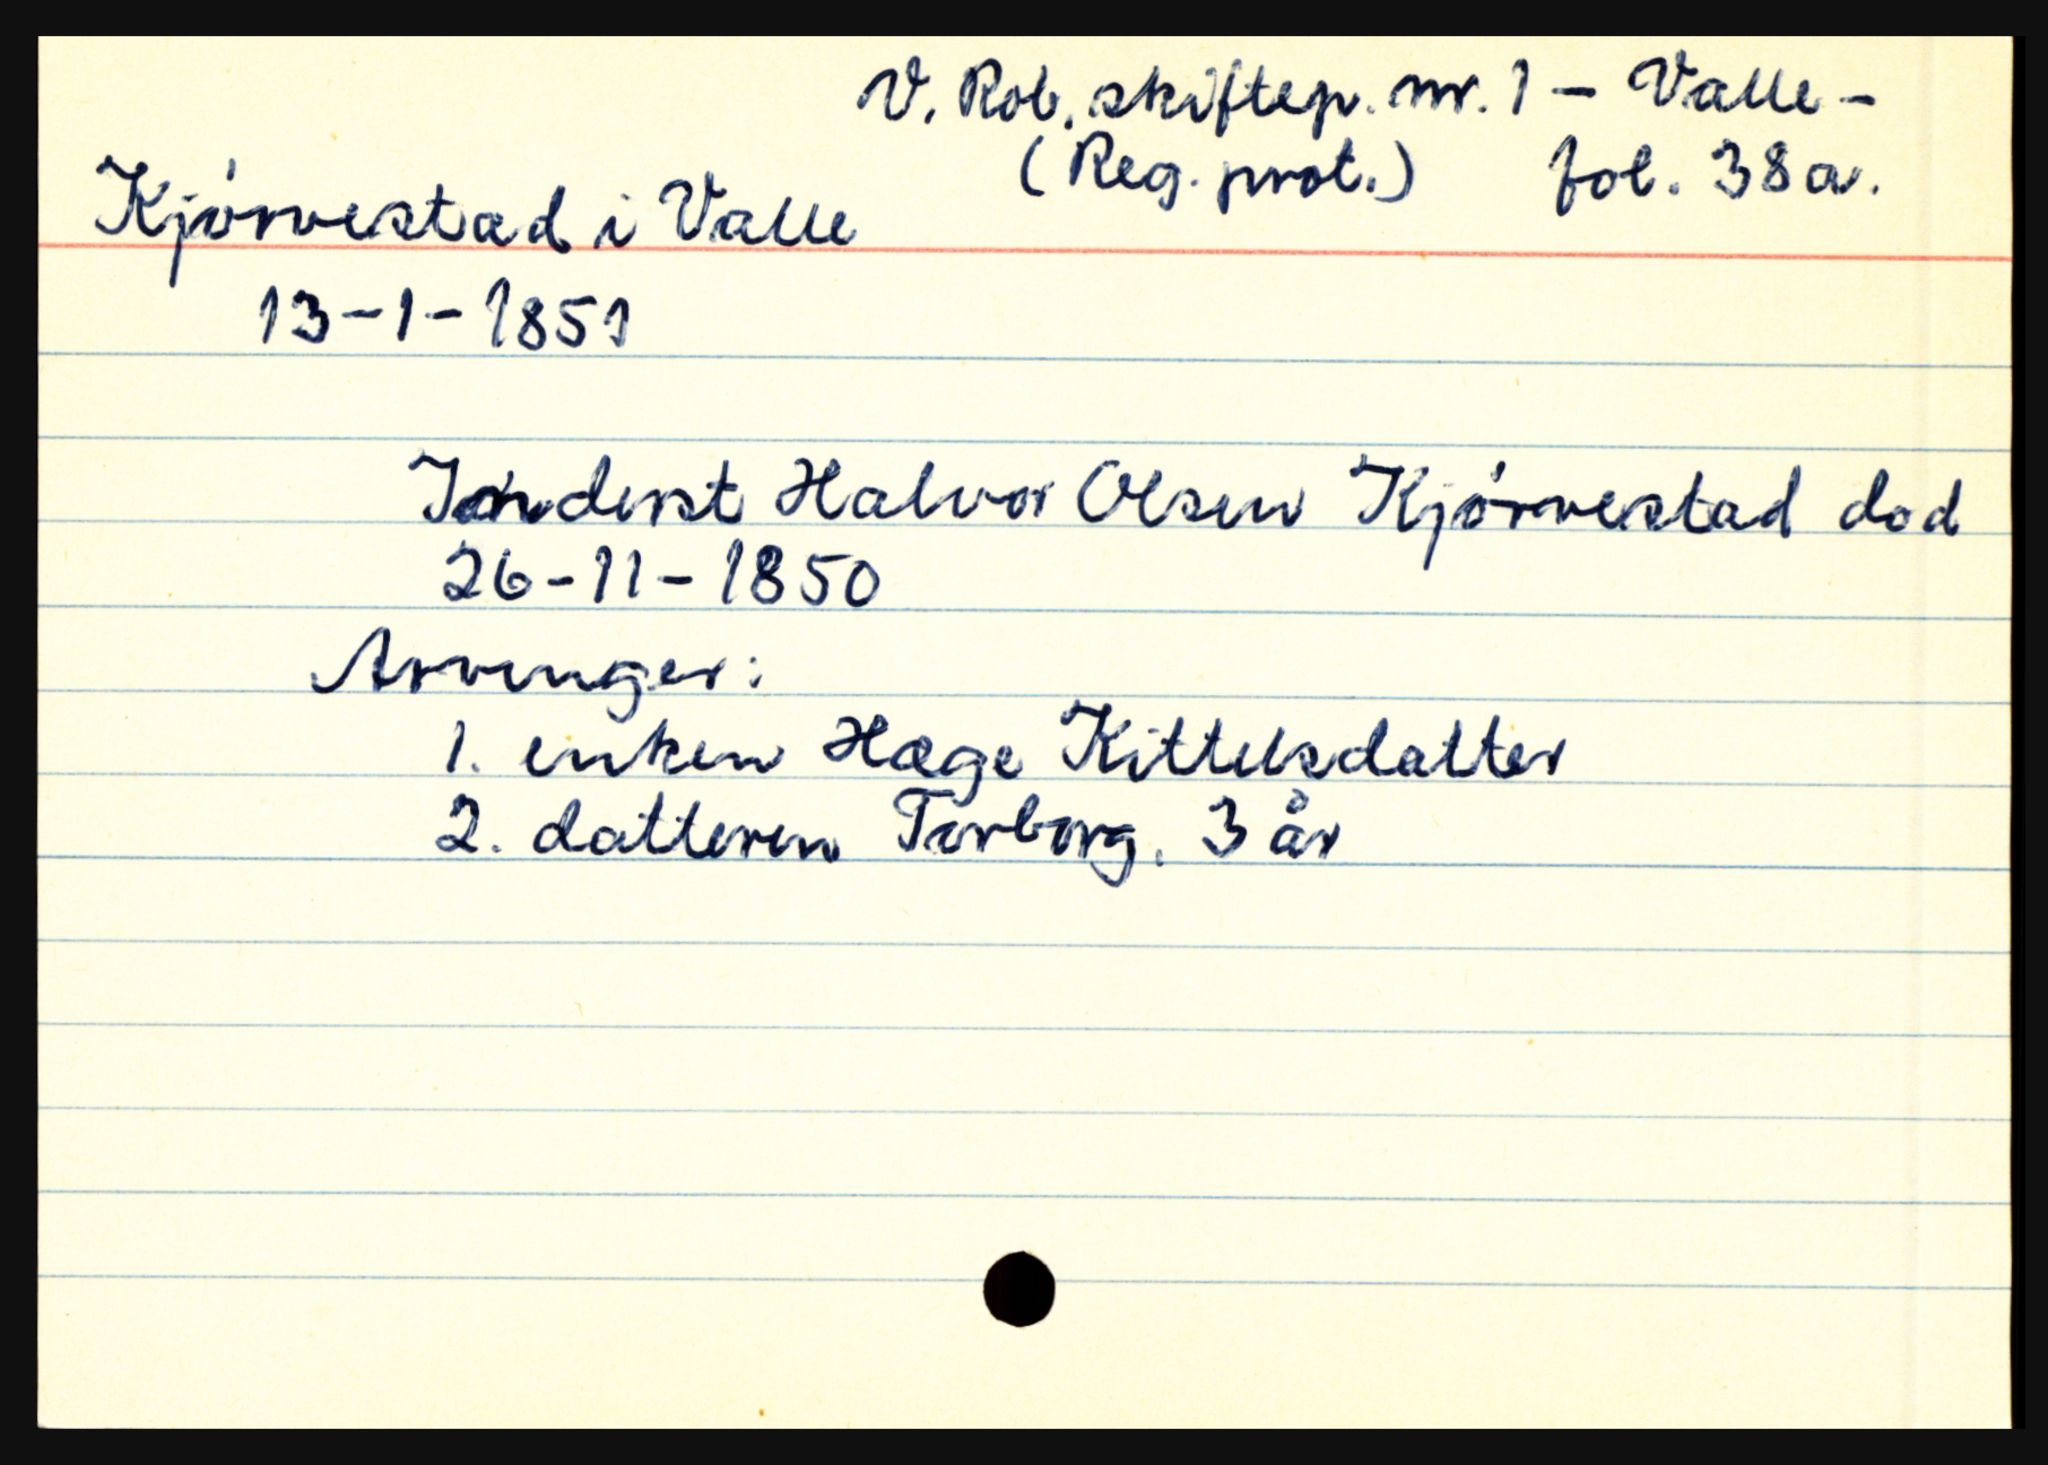 V. Rob. skiftep. nr. 1 - Valle -
(Reg. prot.) fol. 38a.
Kjörvestad i Valle
13-1-1851
Inderst Halvor Olsen Kjörvestad dod
26-11-1850
Arvinger:
1. enken Hæge Kittelsdatter
2. datteren Torborg. 3 år